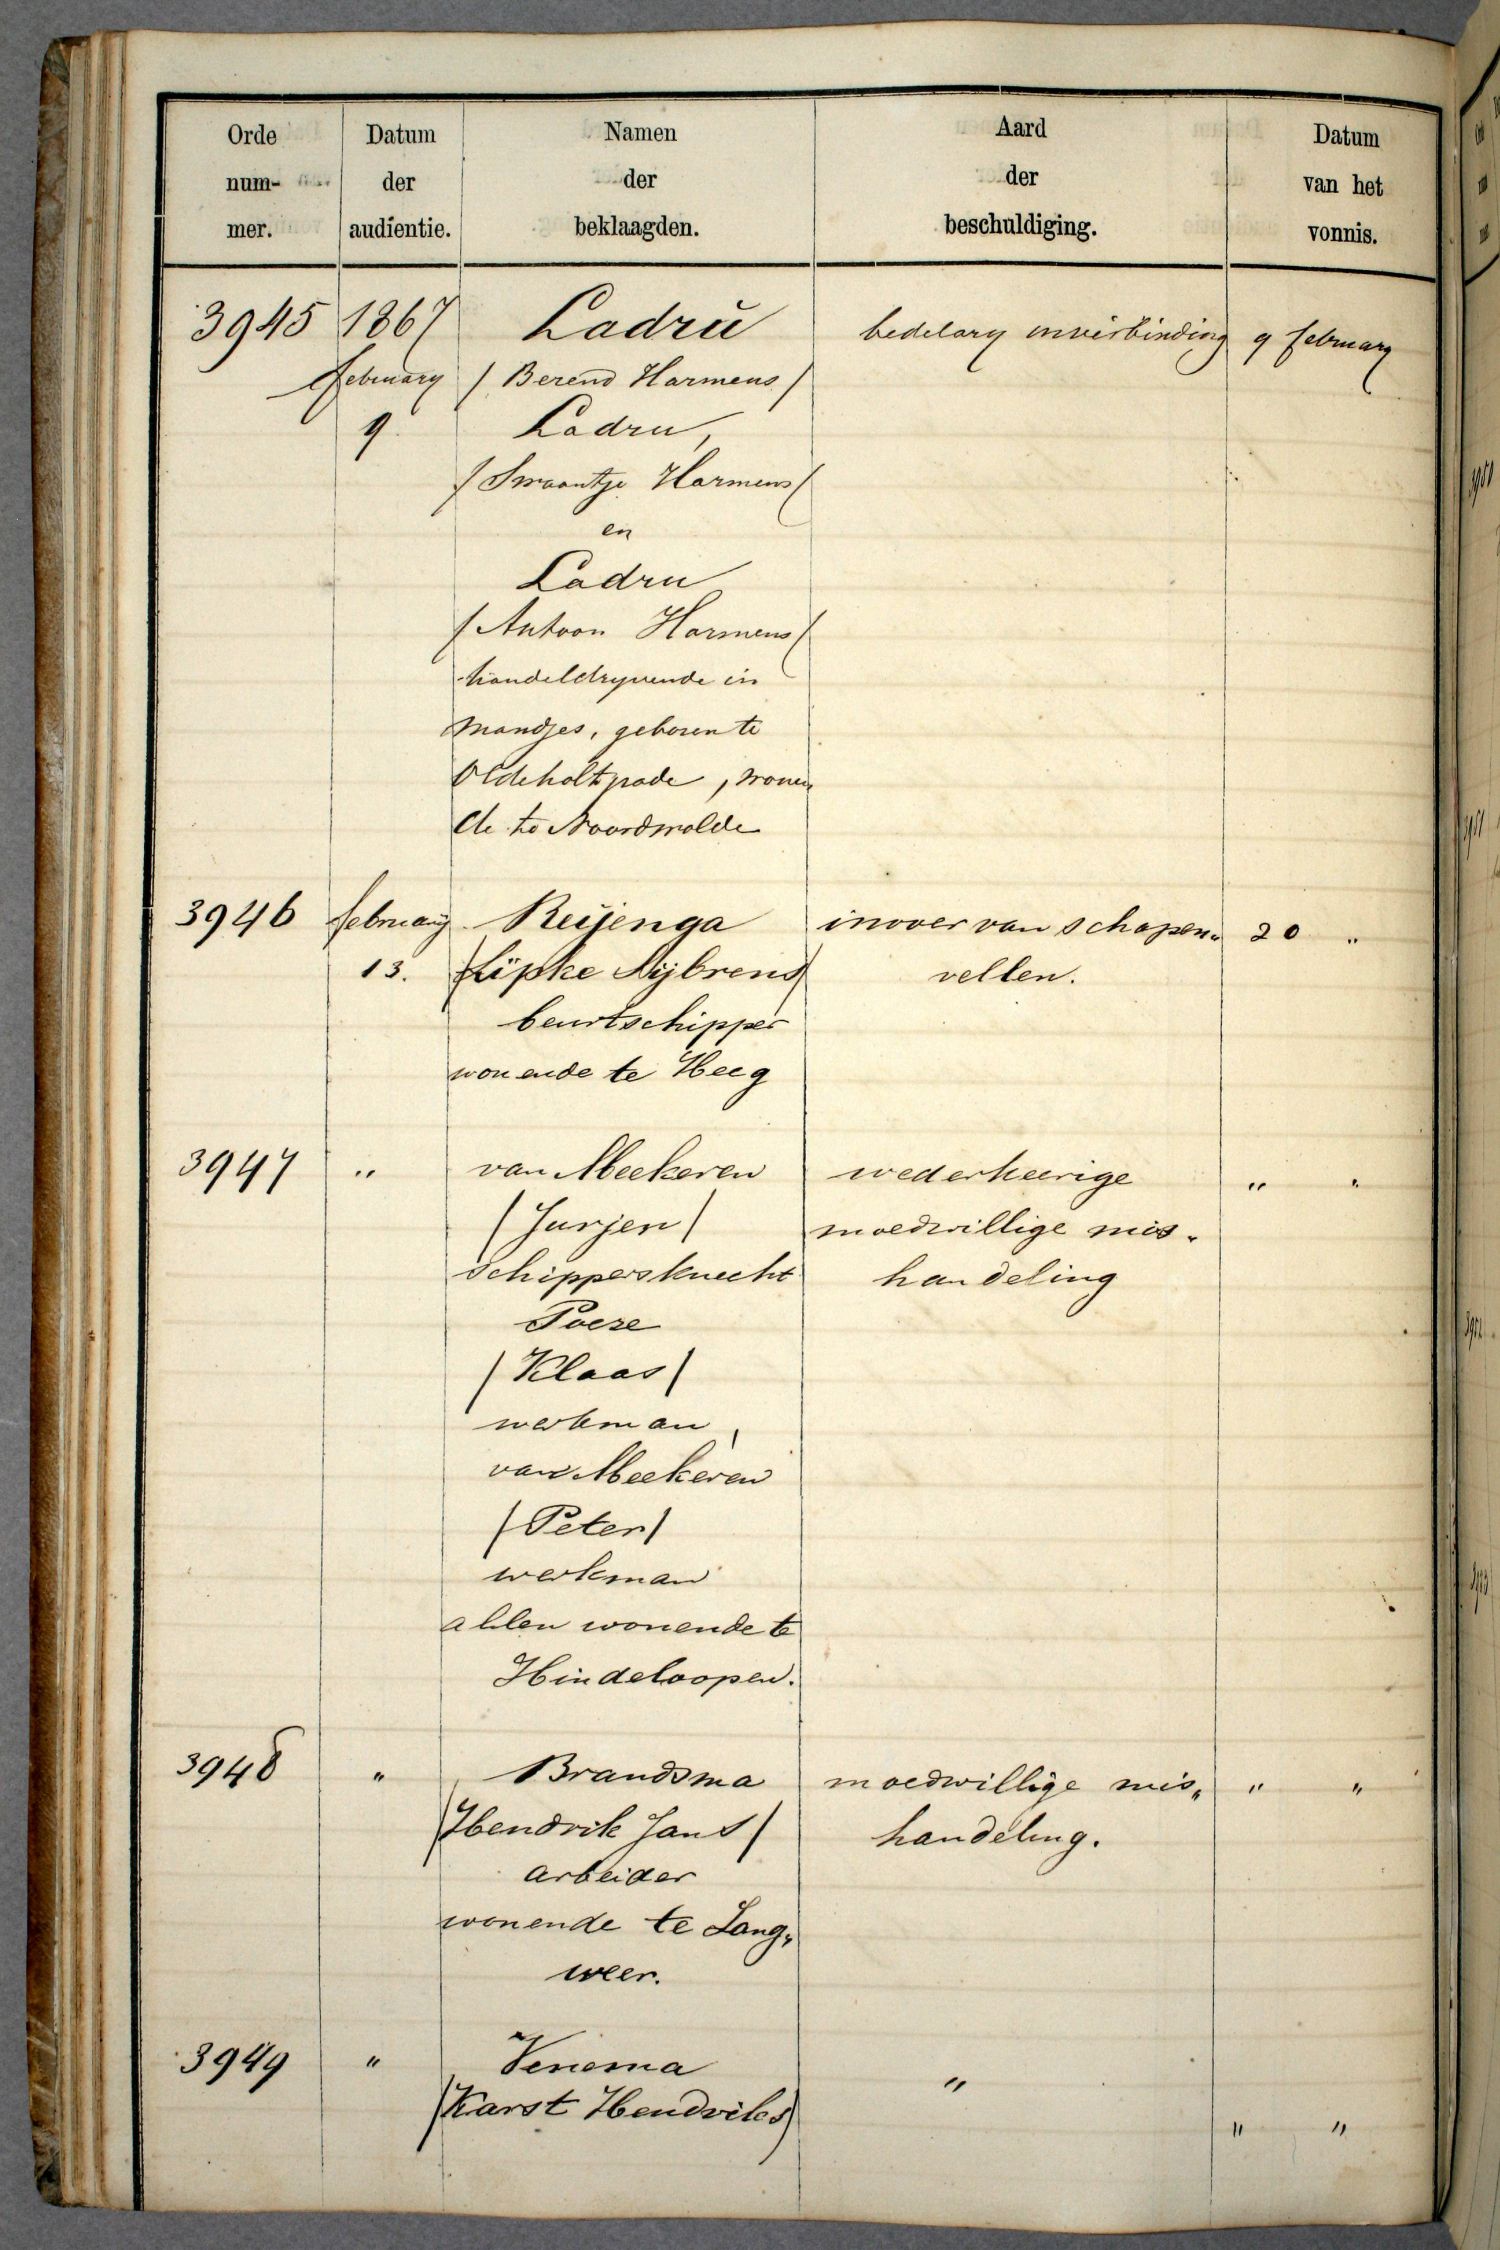 Orde
num-
mer.
Datum
der
audientie.
Namen
der
beklaagden.
Aard
der
beschuldiging.
Datum
van het
vonnis.
3945 1867 Ladrŭ bedelary in verbinding 9 february
february / Berend Harmens /
9 Ladru,
/ Swaantje Harmens /
en
Ladru
/ Antoon Harmens /
handeldryvende in
mandjes, geboren te
Oldeholtpade, wonen
de te Noordwolde
3946 februarij Reijenga invoer van schapen„ 20 „
13. / Lipke Sijbrens / vellen.
beurtschipper
wonende te Heeg
3947 „ van Meekeren wederkeerige „ „
/ Jurjen / moedwillige mis„
schippersknecht handeling
Poeze
/ Klaas /
werkman,
van Meekeren
/ Peter /
werkman
allen wonende te
Hindeloopen.
3948 „ Brandsma moedwillige mis„ „ „
/ Hendrik Jans / handeling.
arbeider
wonende te Lang„
weer.
3949 „ Venema „
/ Karst Hendriks / „ „
3950
3951
3952
3953